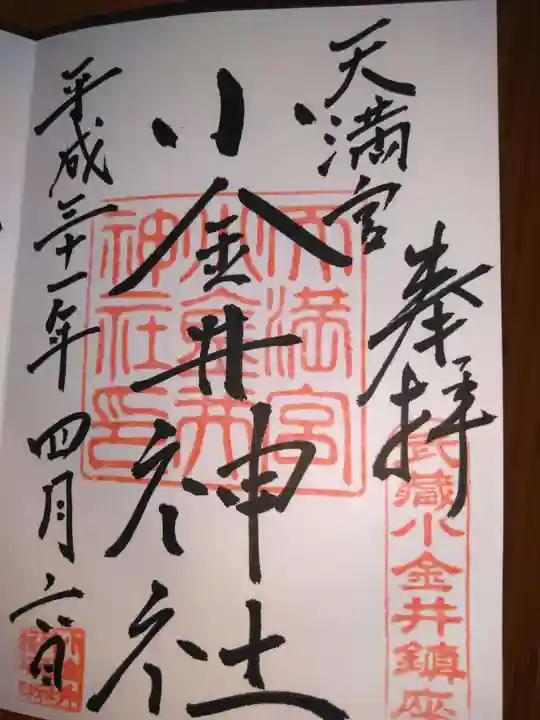 奉拝
武蔵小金井鎮座
天満宮
小金井神社
天満宮
小金井
神社印
平成三十一年四月六日